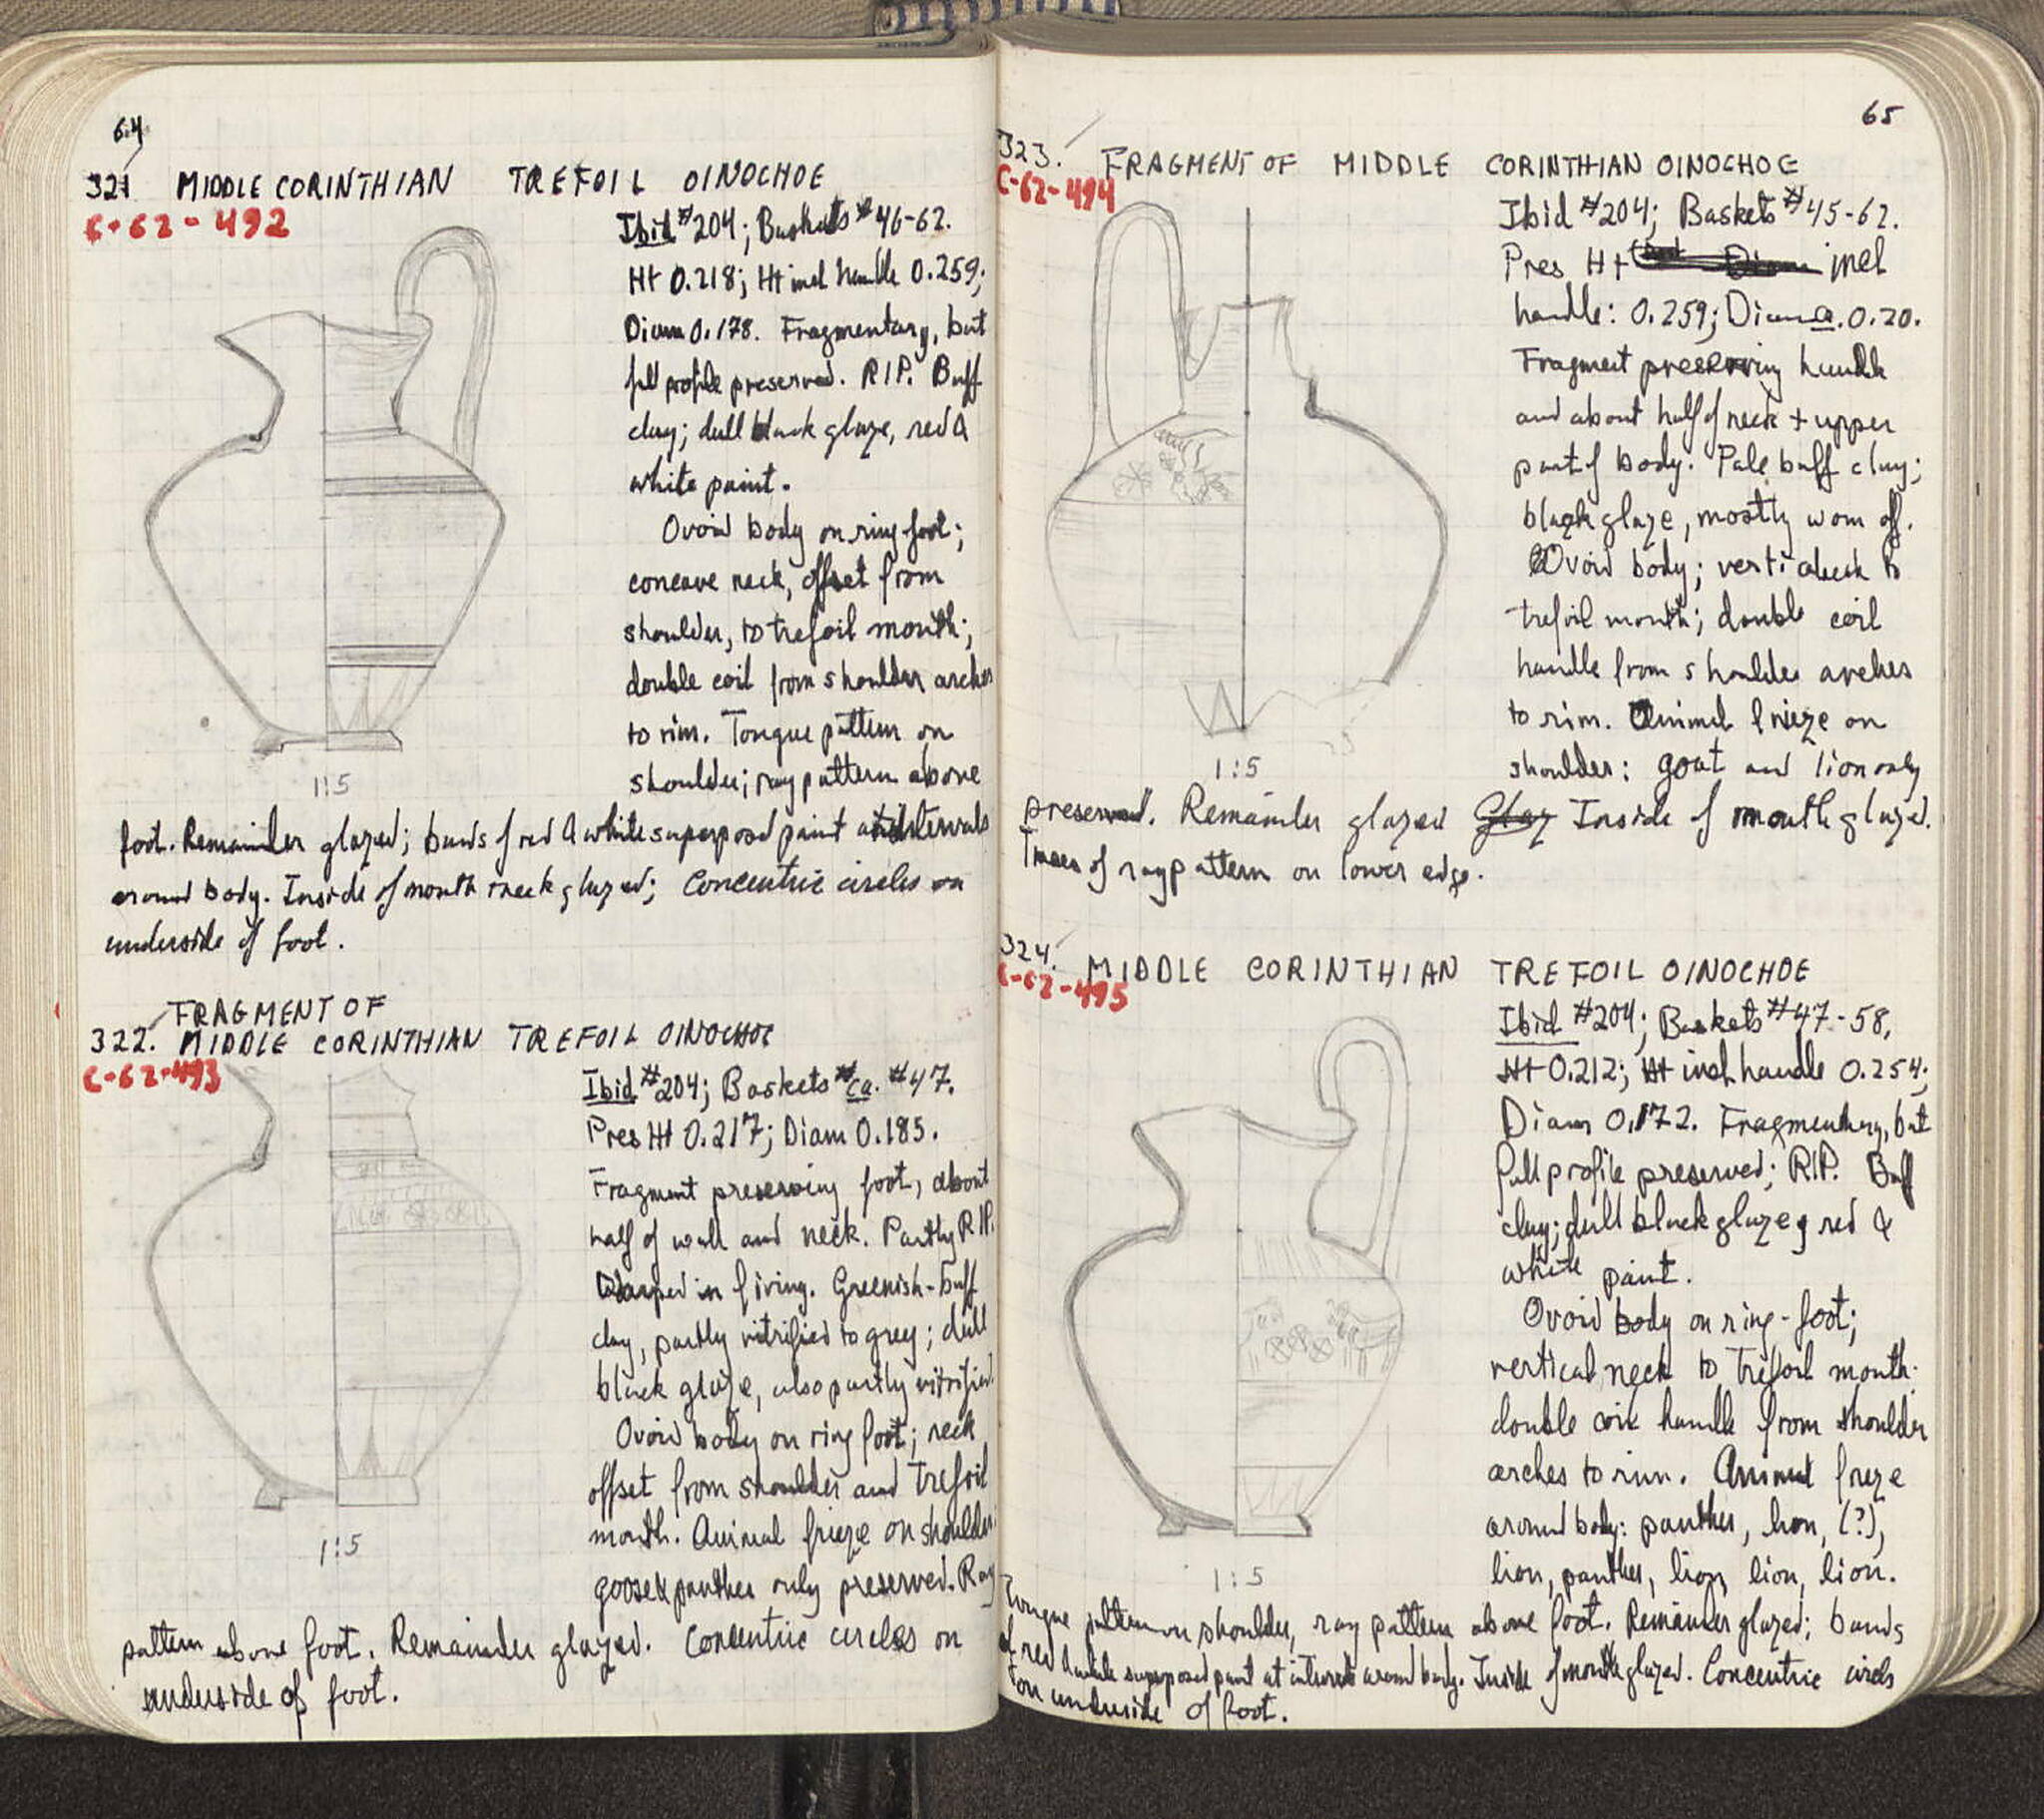 64
321 MIDDLE CORINTHIAN TREFOIL OINOCHOE
C-62-492
Ibid #204; Baskets #46-62.
Ht 0.218; Ht incl handle 0.259;
Diam 0.178. Fragmentary, but
full profile preserved. RIP. Buff
clay; dull black glaze, red &
white paint.
Ovoid body on ring foot;
concave neck, offset from
shoulder, to trefoil mouth;
double coil from shoulder arches
to rim. Tongue pattern on
shoulder; ray pattern above
1:5
foot. Remainder glazed; bands of red & white superposed paint at intervals
around body. Inside of mouth + neck glazed; Concentric circles on
underside of foot.
FRAGMENT OF
322. MIDDLE CORINTHIAN TREFOIL OINOCHOE
C-62-493
Ibid #204; Baskets # ca. #47.
Pres Ht 0.217; Diam 0.185.
Fragment preserving foot, about
half of wall and neck. Partly RIP.
Warped in firing. Greenish-buff
clay, partly vitrified to grey; dull
black glaze, also partly vitrified.
Ovoid body on ring foot; neck
offset from shoulder and trefoil
mouth. Animal frieze on shoulder:
goose & panther only preserved. Ray
1:5
pattern above foot. Remainder glazed. Concentric circles on
underside of foot.
65
323. FRAGMENT OF MIDDLE CORINTHIAN OINOCHOE
C-62-494
Ibid #204; Baskets #45-62.
Pres Ht incl
handle: 0.259; Diam ca. 0.20.
Fragment preserving handle
and about half of neck + upper
part of body. Pale buff clay;
black glaze, mostly worn off.
Ovoid body; vertical neck to
trefoil mouth; double coil
handle from shoulder arches
to rim. Animal frieze on
shoulder: goat and lion only
1:5
preserved. Remainder glazed Glaz Inside of mouth glazed.
Traces of ray pattern on lower edge.
324. MIDDLE CORINTHIAN TREFOIL OINOCHOE
C-62-495
Ibid #204; Baskets #47-58,
Ht 0.212; Ht incl handle 0.254;
Diam 0.172. Fragmentary, but
full profile preserved; RIP. Buff
clay; dull black glaze, red &
white paint.
Ovoid body on ring-foot;
vertical neck to trefoil mouth;
double coil handle from shoulder
arches to rim. Animal frieze
around body: panther, lion, (?),
lion, panther, lion, lion, lion.
1:5
Tongue pattern on shoulder, ray pattern above foot. Remainder glazed; bands
of red & white superposed paint at intervals around body. Inside of mouth glazed. Concentric circles
on underside of foot.